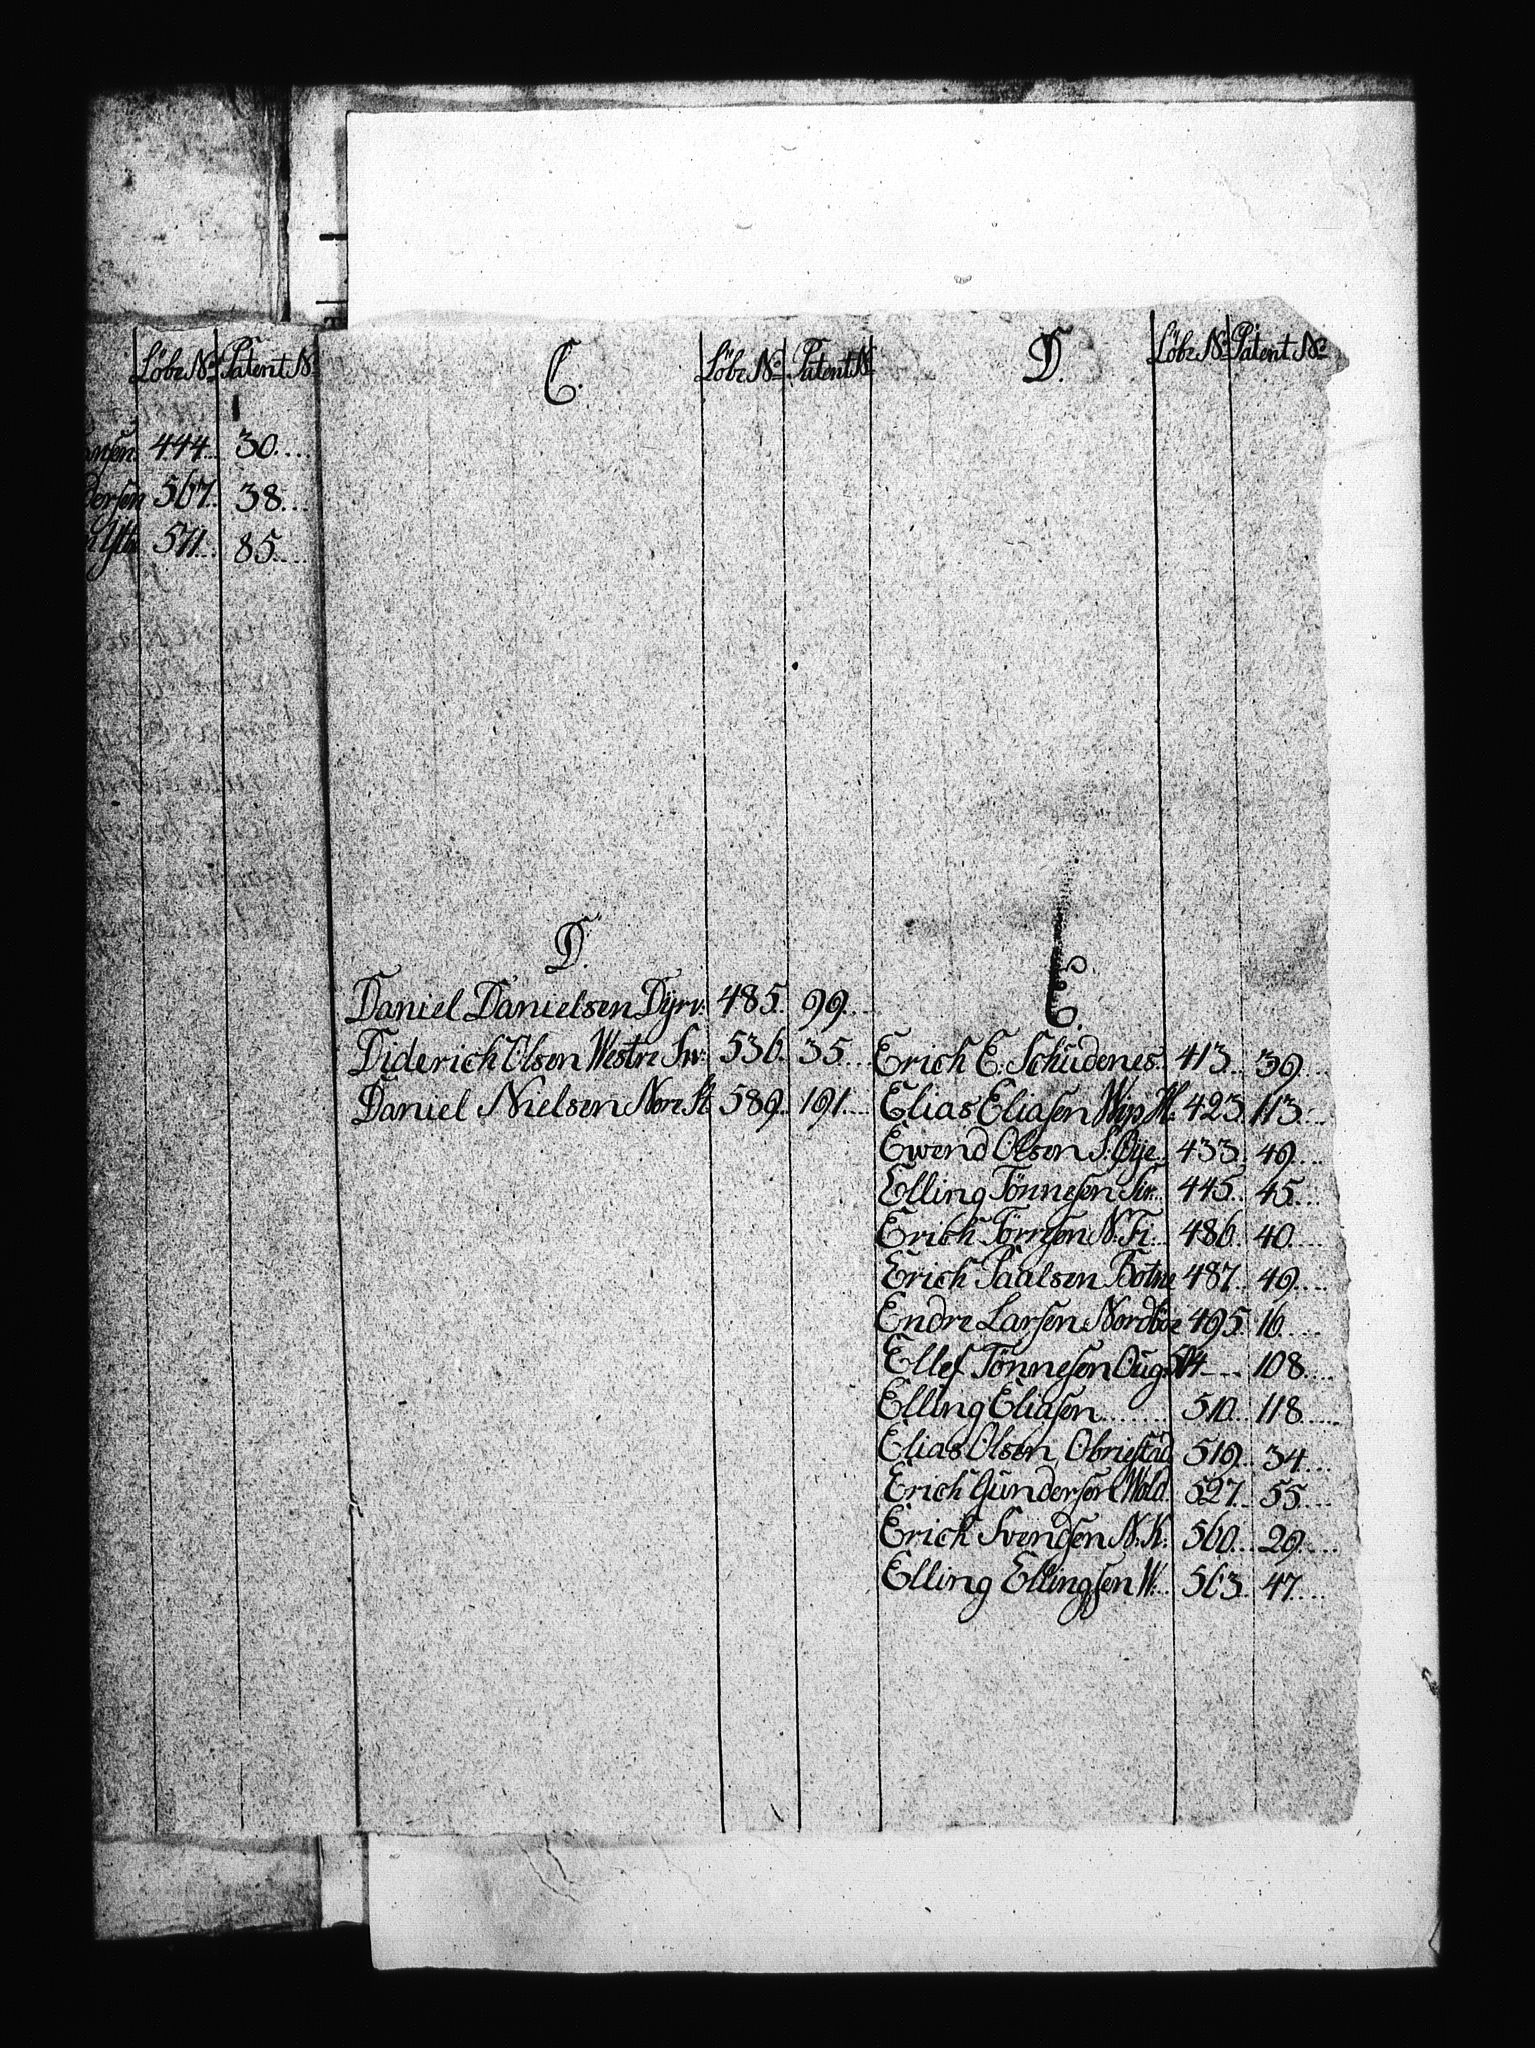 Löbe No Patent N
444 30
567 38
571 85
C. Löbe No Patent No
D.
Daniel Danielsen Dyrv: 485 99
Diderich Olson Westre Sv: 536 35
Daniel Nielsen Nore St 589 191
D. Löbe No Patent No
E.
Erich E. Schudenes 413 39
Elias Eliasen 423 113
Ewend Olson S. Øye 433 49
Elling Tönnesen Sir 445 45
Erich Törresen N. Fi 486 40
Erich Paalsen Botne 487 49
Endre Larsen Nordböe 495 16
Ellef Tönnesen Ougn 504 108
Elling Eliasen 510 118
Elias Olsen Obrestad 519 34
Erich Gundersen Wold 527 55
Erich Svendsen N. K. 560 29
Elling Ellingsen W. 563 47